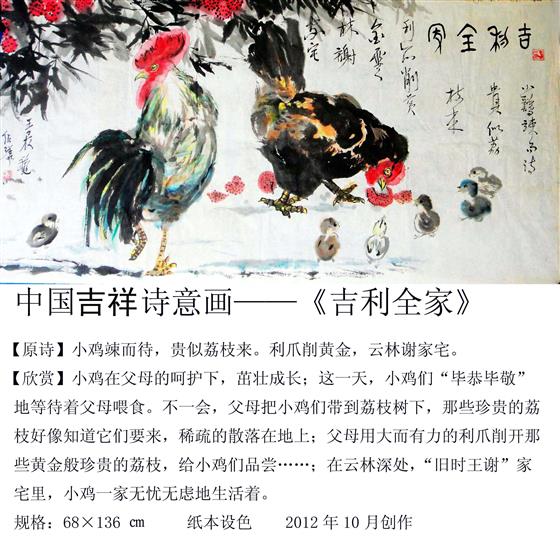 吉利全家
小鸡竦而待
贵似荔
枝来
利爪削黄
金云
林谢
家宅
壬辰
中国吉祥诗意画——《吉利全家》
【原诗】小鸡竦而待，贵似荔枝来。利爪削黄金，云林谢家宅。
【欣赏】小鸡在父母的呵护下，茁壮成长；这一天，小鸡们“毕恭毕敬”
地等待着父母喂食。不一会，父母把小鸡们带到荔枝树下，那些珍贵的荔
枝好像知道它们要来，稀疏的散落在地上；父母用大而有力的利爪削开那
些黄金般珍贵的荔枝，给小鸡们品尝……；在云林深处，“旧时王谢”家
宅里，小鸡一家无忧无虑地生活着。
规格：68×136 cm 纸本设色 2012年10月创作